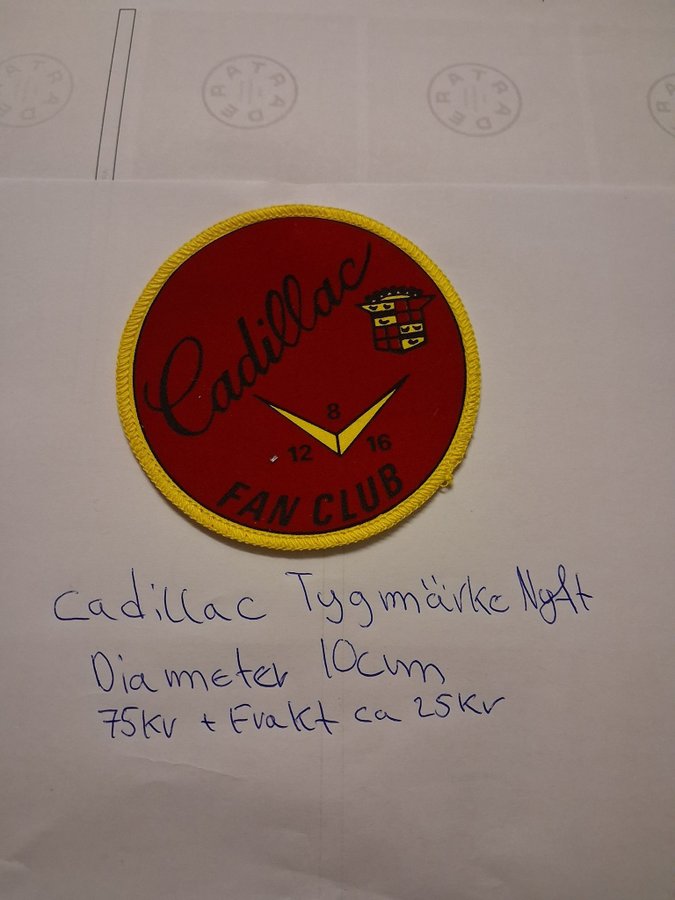 TRADERA
TRADERA
Cadillac
8
12 16
FAN CLUB
Cadillac Tygmärke Nytt
Diameter 10cm
75kr + Frakt ca 25kr